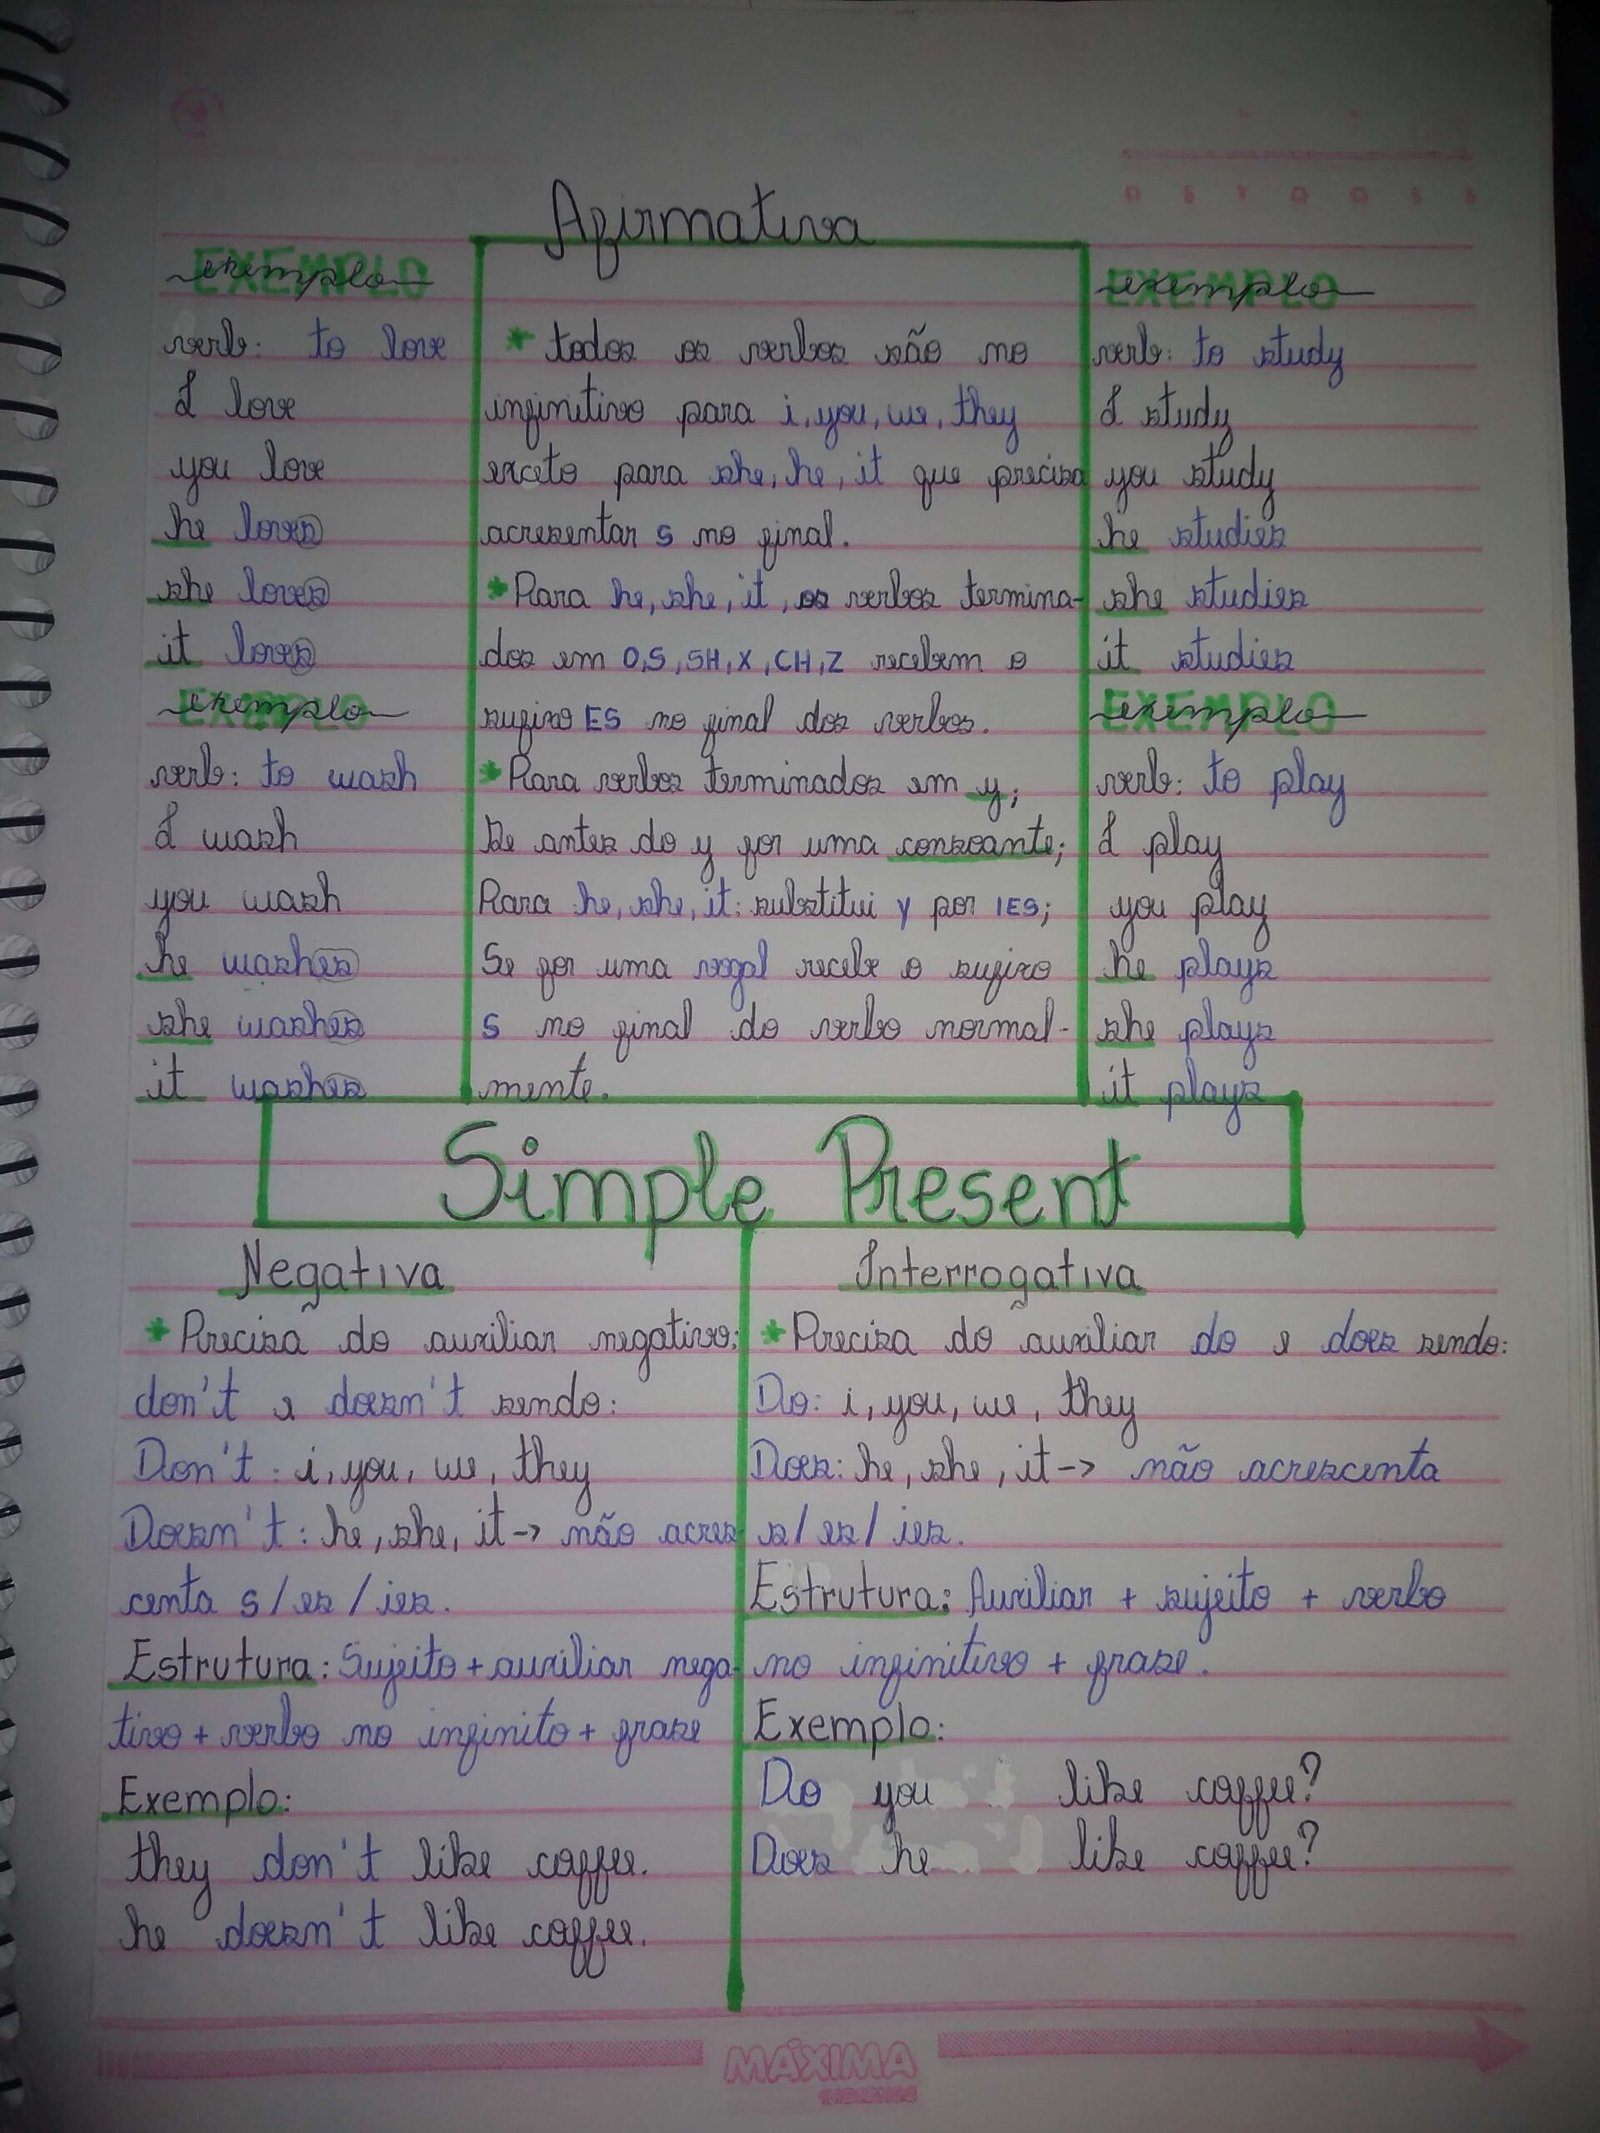 Afirmativa
exemplo
verb: to love
I love
you love
he loves
she loves
it loves
exemplo
verb: to wash
I wash
you wash
he washes
she washes
it washes
* todos os verbos são no
infinitivo para i, you, we, they
exceto para she, he, it que precisa
acresentar s no final.
* Para he, she, it, os verbos termina-
dos em O, S, SH, X, CH, Z recebem o
sufixo ES no final dos verbos.
* Para verbos terminados em y;
Se antes do y for uma consoante;
Para he, she, it: substitui y por IES;
Se for uma vogal recebe o sufixo
S no final do verbo normal-
mente.
exemplo
verb: to study
I study
you study
he studies
she studies
it studies
exemplo
verb: to play
I play
you play
he plays
she plays
it plays
Simple Present
Negativa
* Precisa do auxiliar negativo:
don't e doesn't sendo:
Don't: i, you, we, they
Doesn't: he, she, it -> não acres-
centa s/es/ies.
Estrutura: Sujeito + auxiliar nega-
tivo + verbo no infinito + frase
Exemplo:
they don't like coffee.
he doesn't like coffee.
Interrogativa
* Precisa do auxiliar do e does sendo:
Do: i, you, we, they
Does: he, she, it -> não acrescenta
s/es/ies.
Estrutura: Auxiliar + sujeito + verbo
no infinitivo + frase.
Exemplo:
Do you like coffee?
Does he like coffee?
MÁXIMA